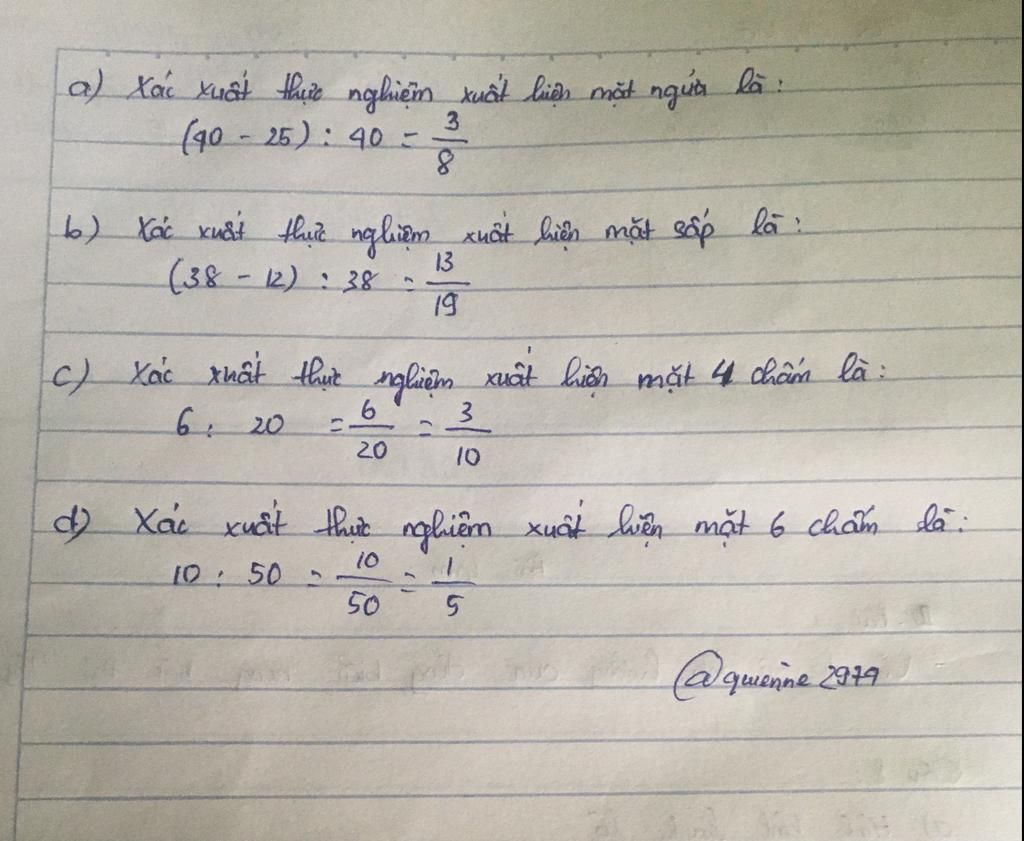 a) Xác xuất thực nghiệm xuất hiện mặt ngửa là:
(40 - 25) : 40 = 3/8
b) Xác xuất thực nghiệm xuất hiện mặt sấp là:
(38 - 12) : 38 = 13/19
c) Xác xuất thực nghiệm xuất hiện mặt 4 chấm là:
6 : 20 = 6/20 = 3/10
d) Xác xuất thực nghiệm xuất hiện mặt 6 chấm là:
10 : 50 = 10/50 = 1/5